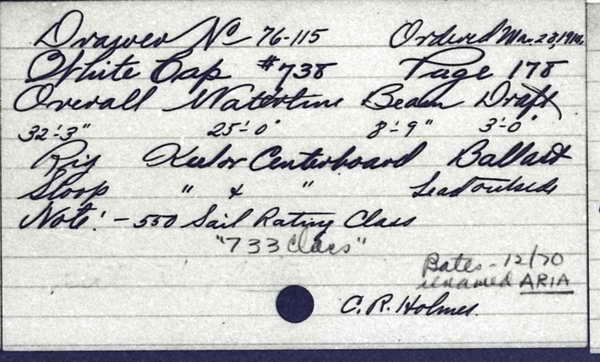 Drawer No 76-115 Ordered Mar. 28, 1914
White Cap #738 Page 178
Overall Waterline Beam Draft
32'-3" 25'-0" 8'-9" 3'-0"
Rig Keel or Centerboard Ballast
Sloop " & " Lead outside
Note! - 550 Sail Rating Class
"733 Class"
Bates - 12/70
renamed ARIA
C. R. Holmes.